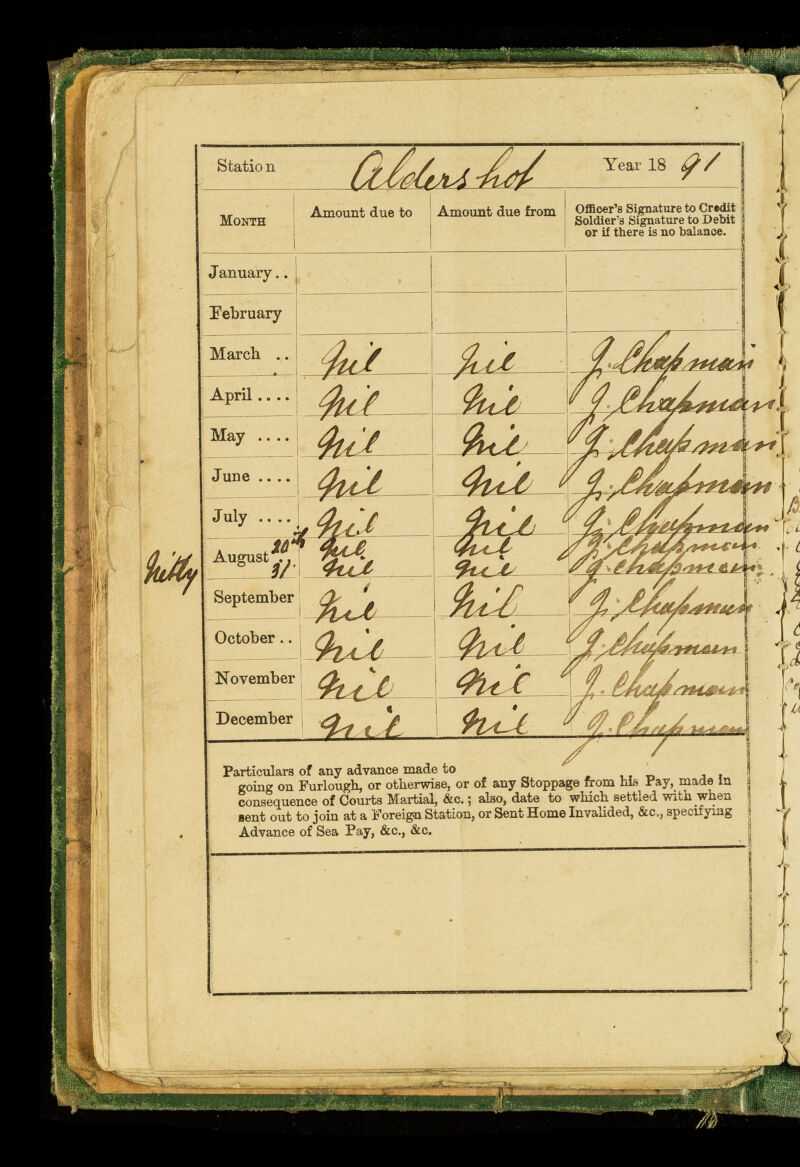 Station Aldershot Year 18 91
MONTH Amount due to Amount due from Officer's Signature to Credit
Soldier's Signature to Debit
or if there is no balance.
January..
February
March .. Nil Nil J. Chapman
April.... Nil Nil J. Chapman
May .... Nil Nil J. Chapman
June .... Nil Nil J. Chapman
July .... Nil Nil J. Chapman
20th Nil Nil J. Chapman
August 31. Nil Nil J. Chapman
September Nil Nil J. Chapman
October.. Nil Nil J. Chapman
November Nil Nil J. Chapman
December Nil Nil J. Chapman
Particulars of any advance made to
going on Furlough, or otherwise, or of any Stoppage from his Pay, made in
consequence of Courts Martial, &c.; also, date to which settled with when
sent out to join at a Foreign Station, or Sent Home Invalided, &c., specifying
Advance of Sea Pay, &c., &c.